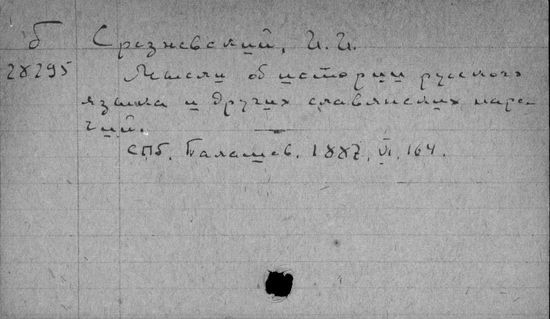 б Срезневский, И. И.
28295 Мысли об истории русского
языка и других славянских наре-
чий.
СПб, Балашев, 1887, VI, 164.